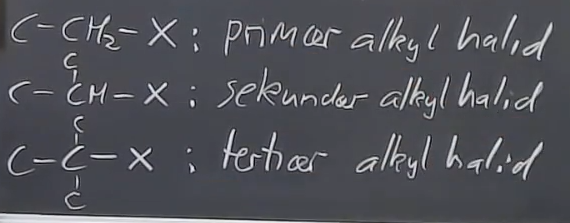 C-CH₂-X : primær alkyl halid
C
C-CH-X : sekundær alkyl halid
C
C-C-X : tertiær alkyl halid
C